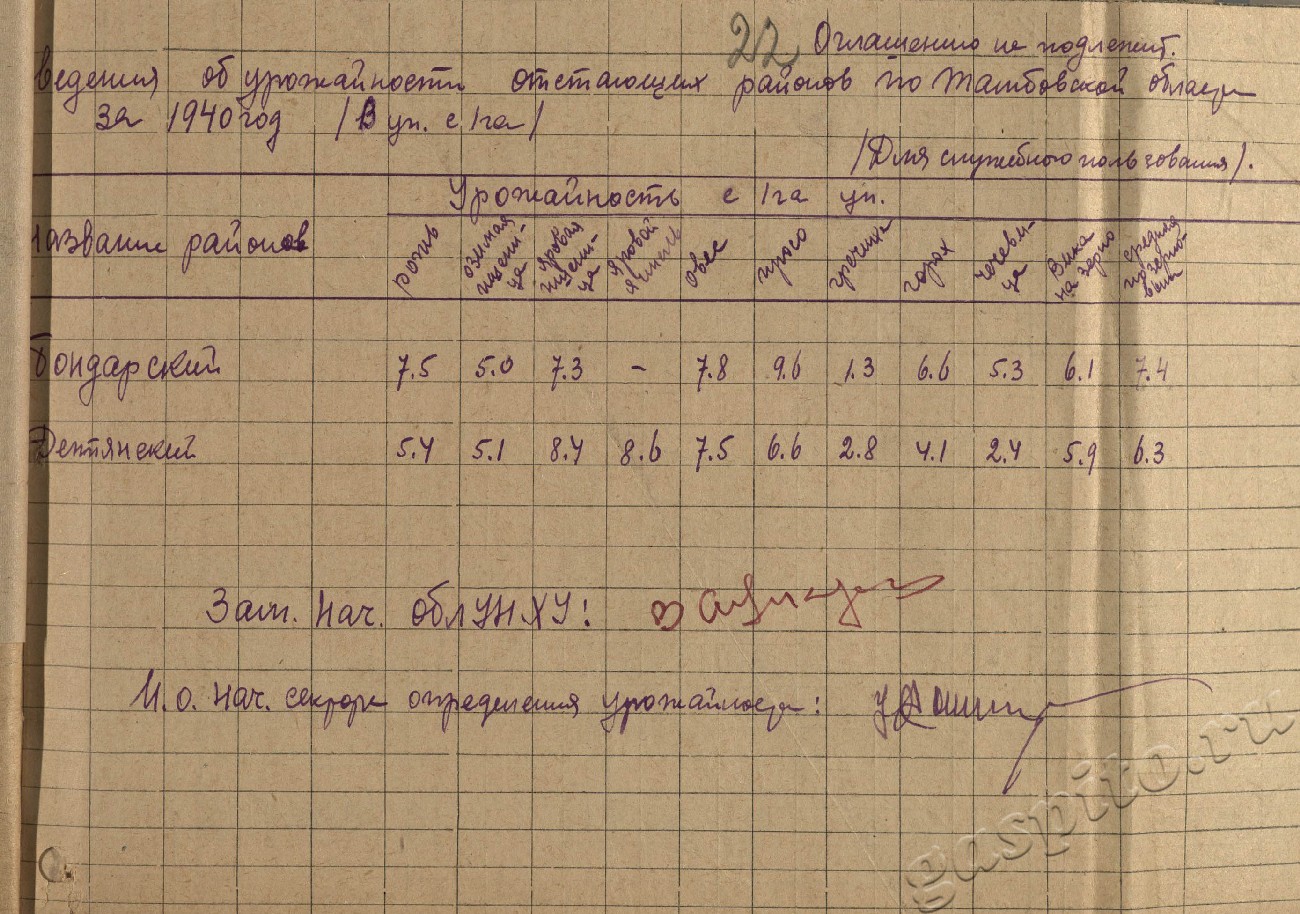 22 Оглашению не подлежит.
ведения об урожайности отстающих районов по Тамбовской области
за 1940 год /В цн. с 1 га/
/Для служебного пользования/.
Урожайность с 1 га цн.
Название районов рожь озимая пшени-ца яровая пшени-ца яровой ячмень овес просо гречиха горох чечеви-ца Вика на зерно средняя по зерно-вым
Бондарский 7.5 5.0 7.3 – 7.8 9.6 1.3 6.6 5.3 6.1 7.4
Дегтянский 5.4 5.1 8.4 8.6 7.5 6.6 2.8 4.1 2.4 5.9 6.3
Зам. нач. облУНХУ:
И.о. нач. сектора определения урожайности:
gaspito.ru